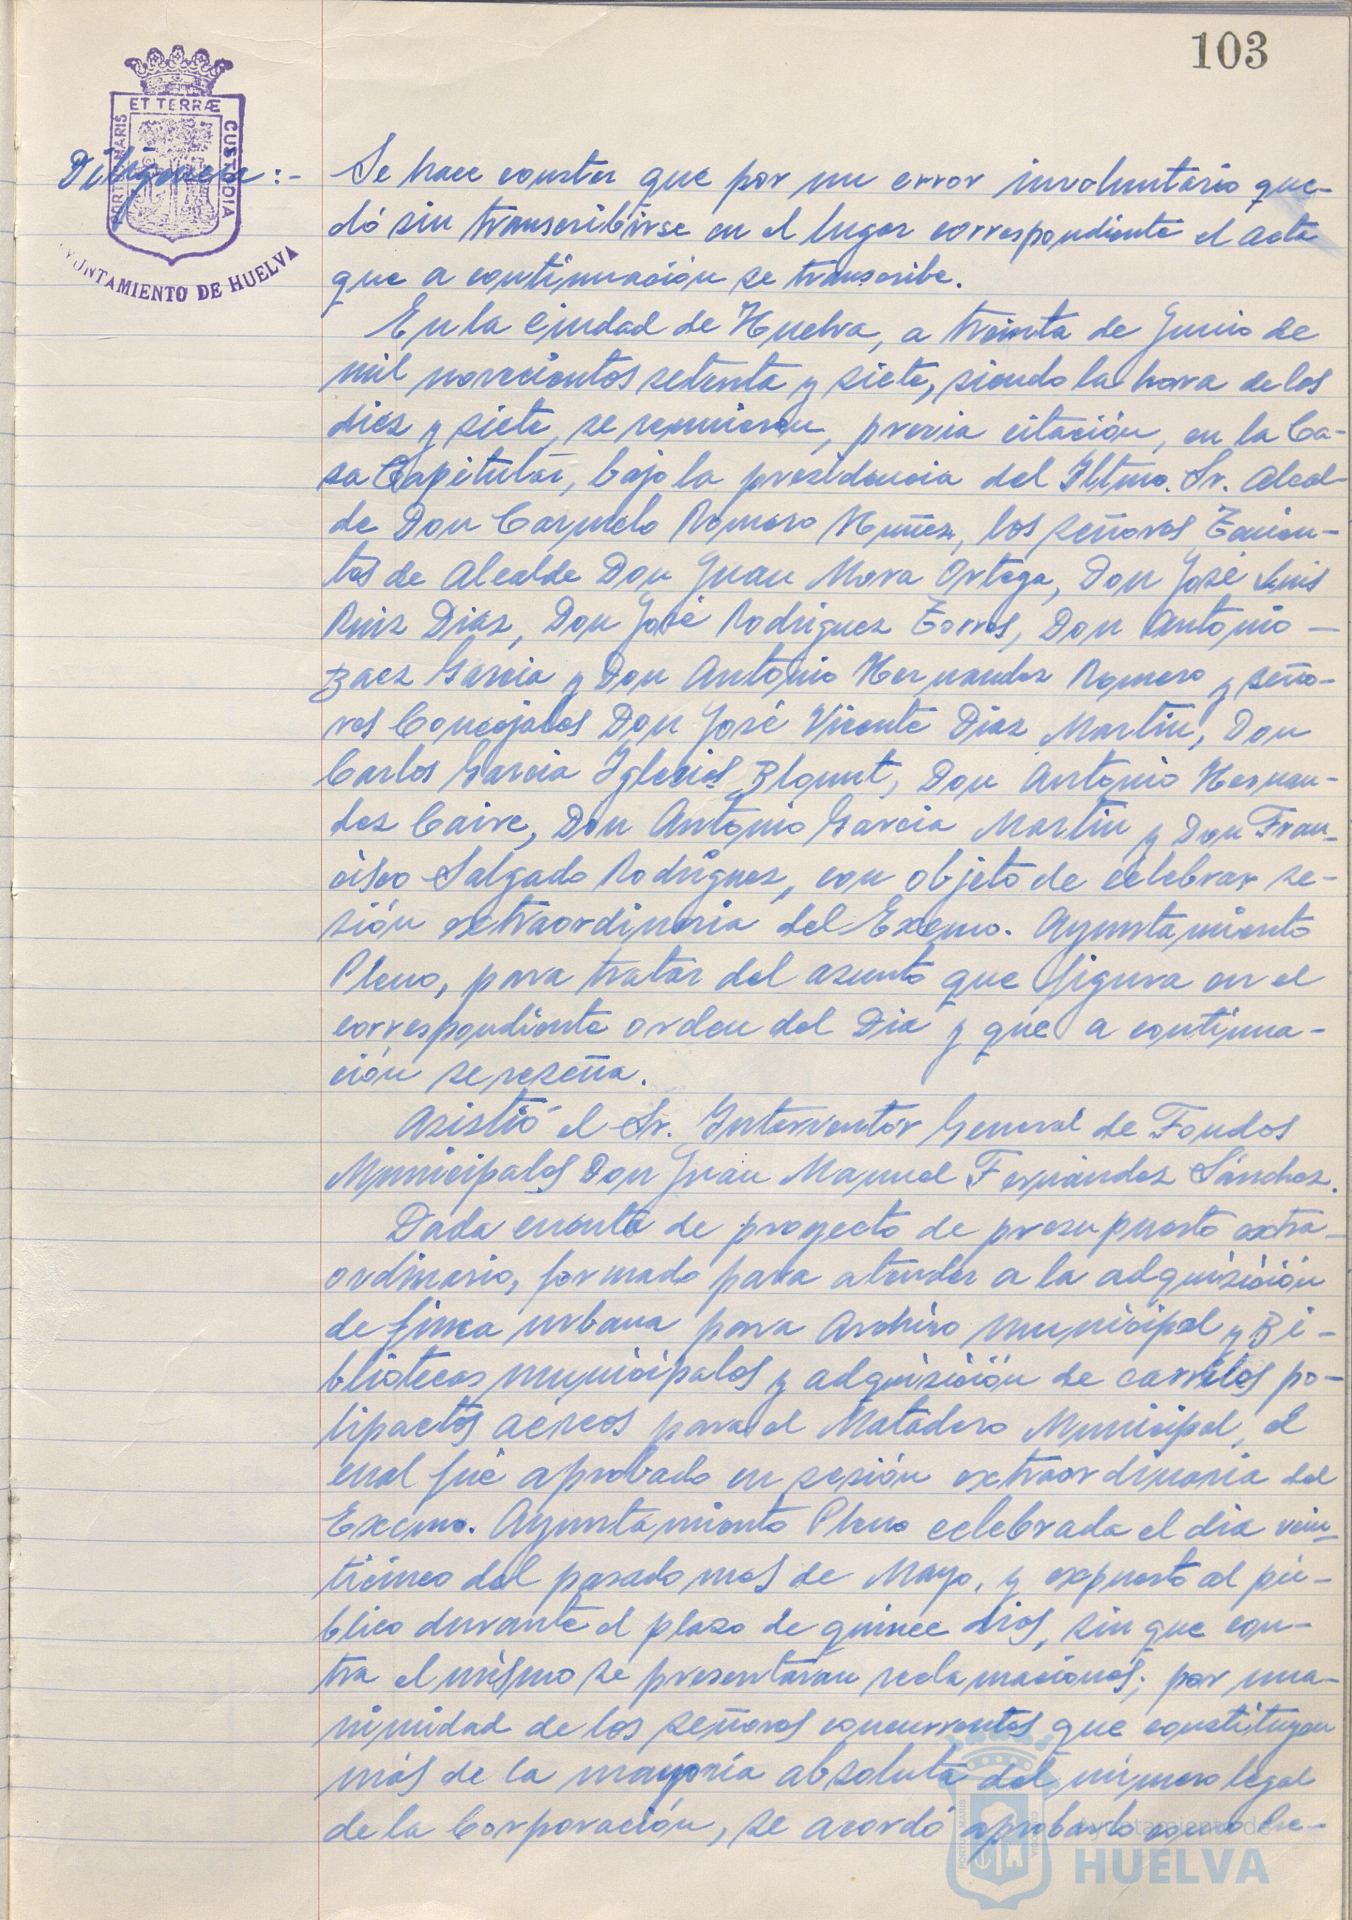 103
ET TERRÆ
PORTUS MARIS
CUSTODIA
AYUNTAMIENTO DE HUELVA
Diligencia:- Se hace constar que por un error involuntario que-
dó sin transcribirse en el lugar correspondiente el acta
que a continuación se transcribe.
En la Ciudad de Huelva, a treinta de Junio de
mil novecientos setenta y siete, siendo la hora de las
diez y siete, se reunieron, previa citación, en la Ca-
sa Capitular, bajo la presidencia del Iltmo. Sr. Alcal-
de Don Carmelo Romero Nuñez, los señores Tenien-
tes de Alcalde Don Juan Mora Ortega, Don José Luis
Ruiz Diaz, Don José Rodriguez Torres, Don Antonio -
Baez Garcia y Don Antonio Hernandez Romero y seño-
res Concejales Don José Vicente Diaz Martin, Don
Carlos Garcia Iglesias Blount, Don Antonio Hernan-
dez Caire, Don Antonio Garcia Martin y Don Fran-
cisco Salgado Rodriguez, con objeto de celebrar se-
sión extraordinaria del Excmo. Ayuntamiento
Pleno, para tratar del asunto que figura en el
correspondiente orden del Dia y que a continua-
ción se reseña.
Asistió el Sr. Interventor General de Fondos
Municipales Don Juan Manuel Fernández Sánchez.
Dada cuenta de proyecto de presupuesto extra-
ordinario, formado para atender a la adquisición
de finca urbana para Archivo municipal y Bi-
bliotecas municipales y adquisición de carriles po-
lipactos aéreos para el Matadero Municipal, el
cual fué aprobado en sesión extraordinaria del
Excmo. Ayuntamiento Pleno celebrada el dia vein-
ticinco del pasado mes de Mayo, y expuesto al pú-
blico durante el plazo de quince dias, sin que con-
tra el mismo se presentaran reclamaciones; por una-
nimidad de los señores concurrentes que constituyen
más de la mayoría absoluta del número legal
de la Corporación, se acordó aprobarlo como de-
Ayuntamiento de
HUELVA